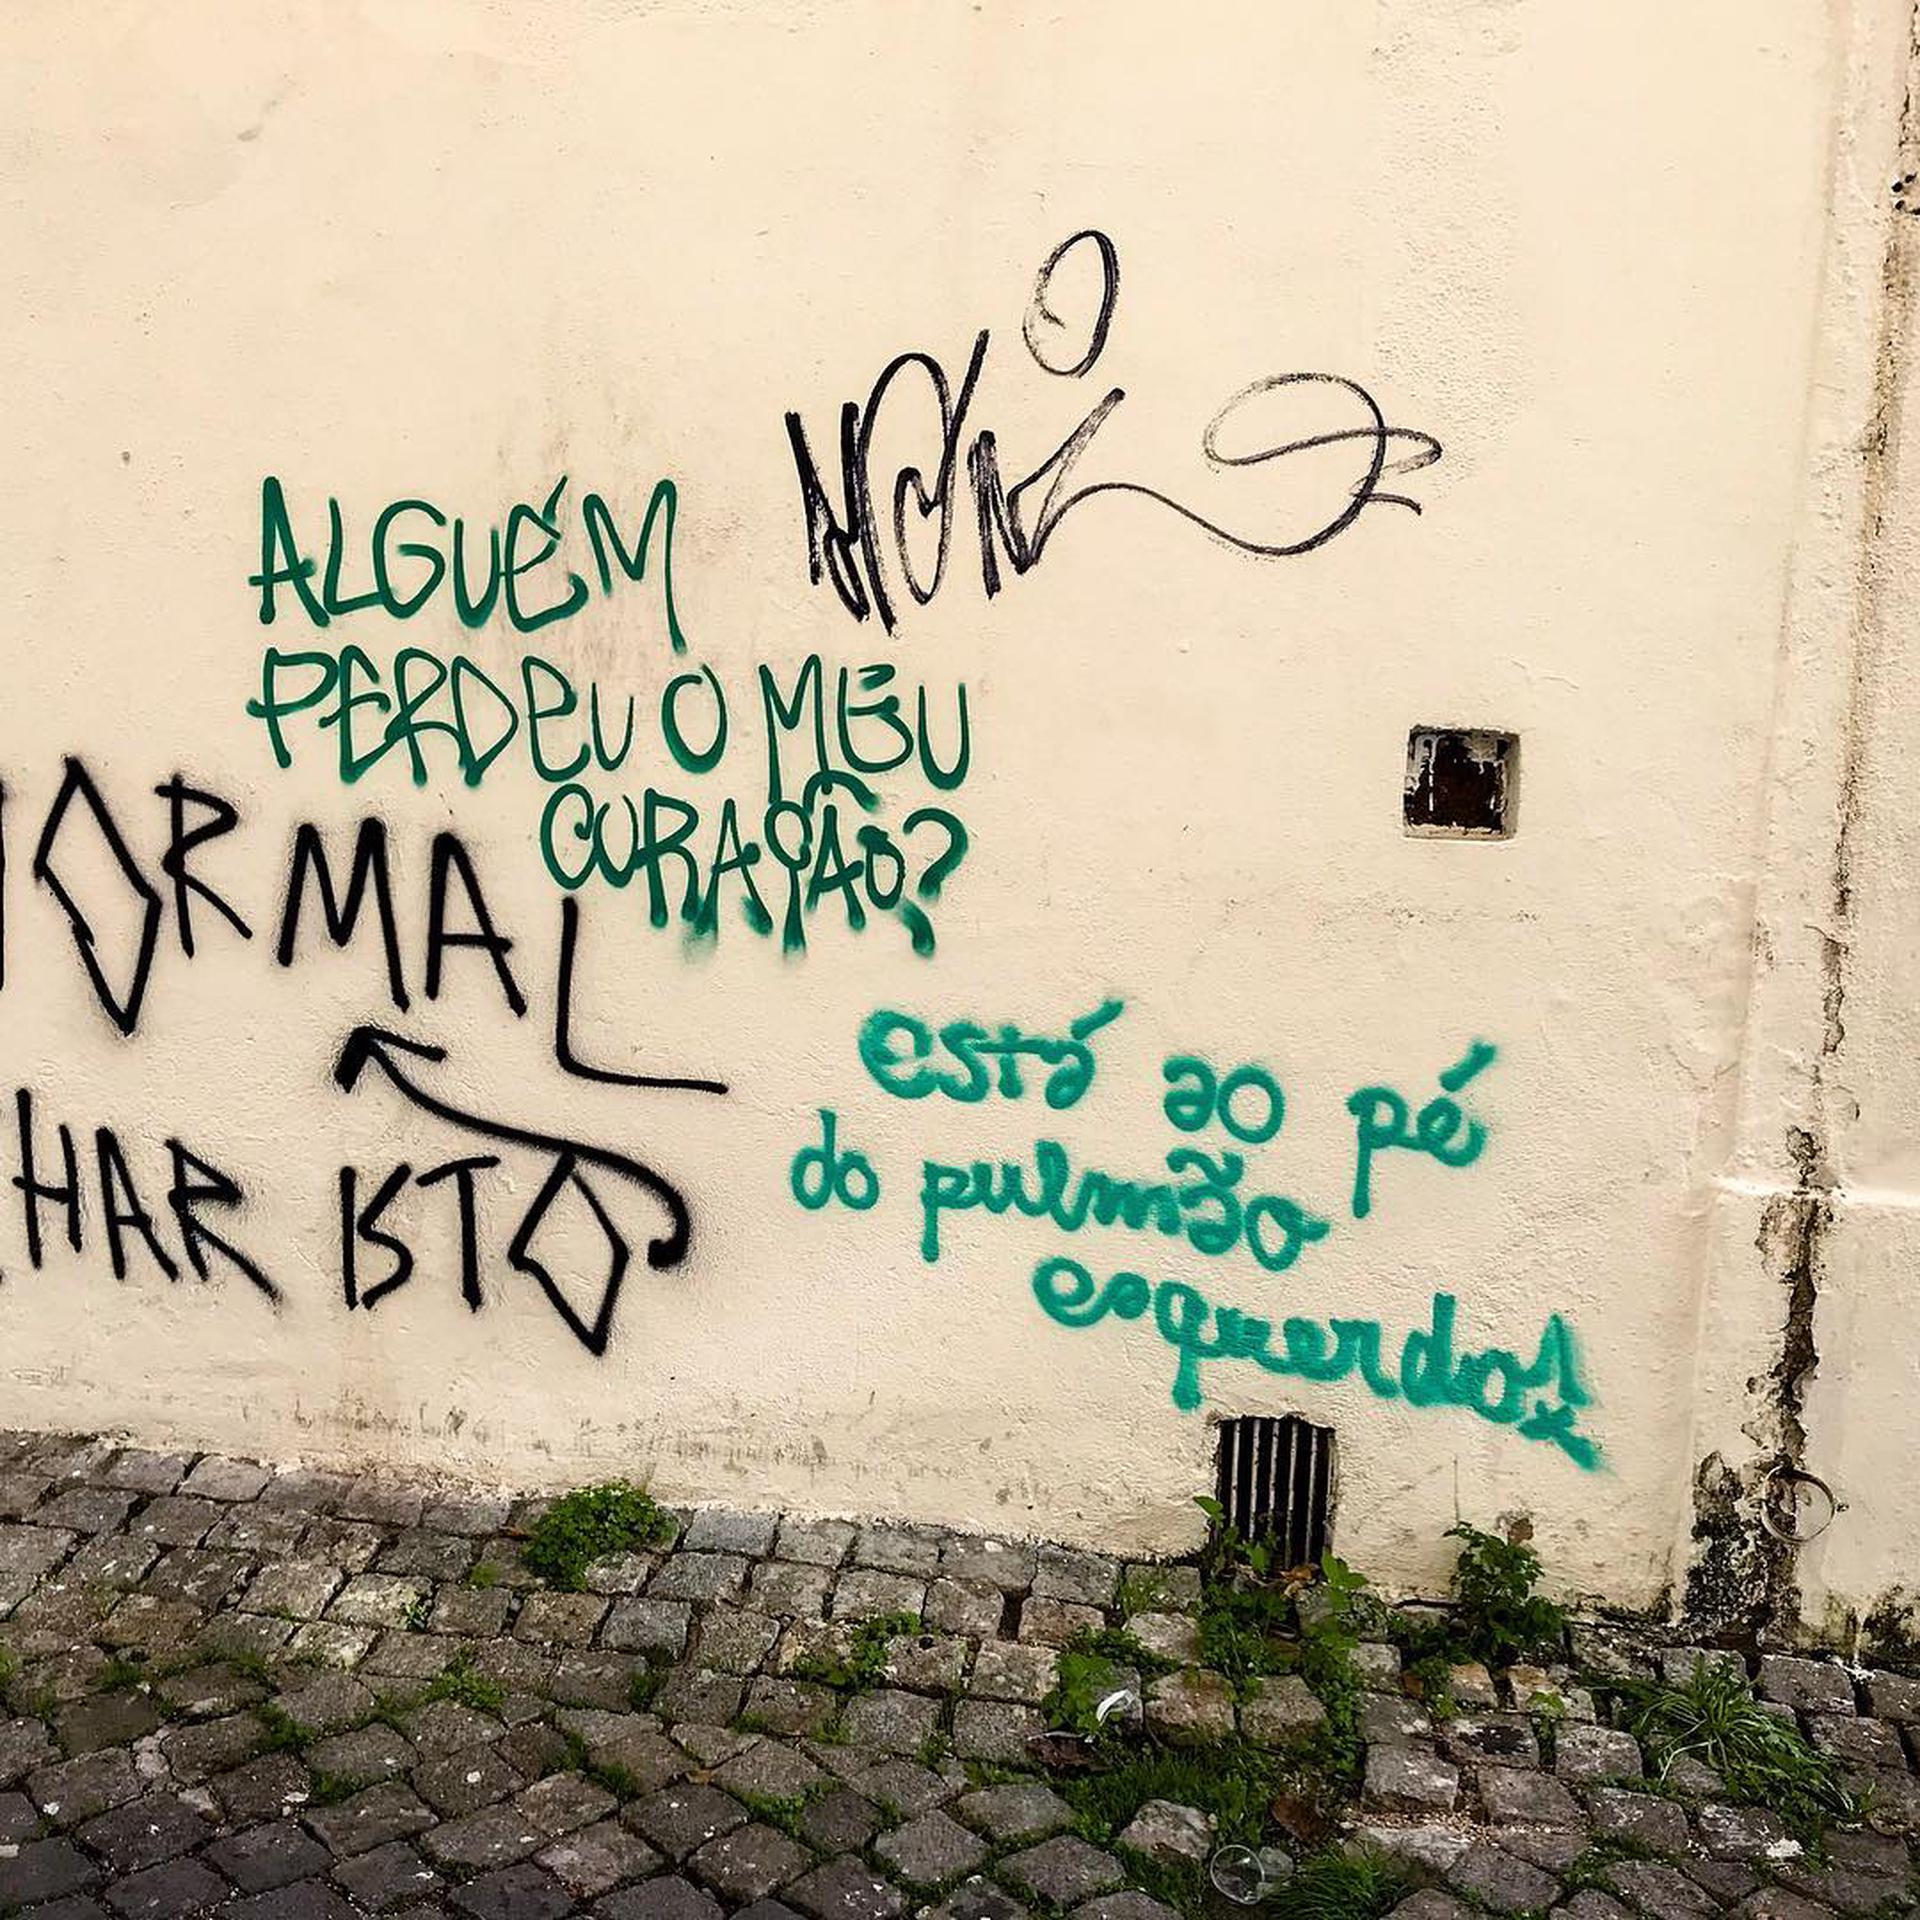 ALGUÉM
PERDEU O MEU
CORAÇÃO?
ORMAL
HAR ISTO
está ao pé
do pulmão
esquerdo!